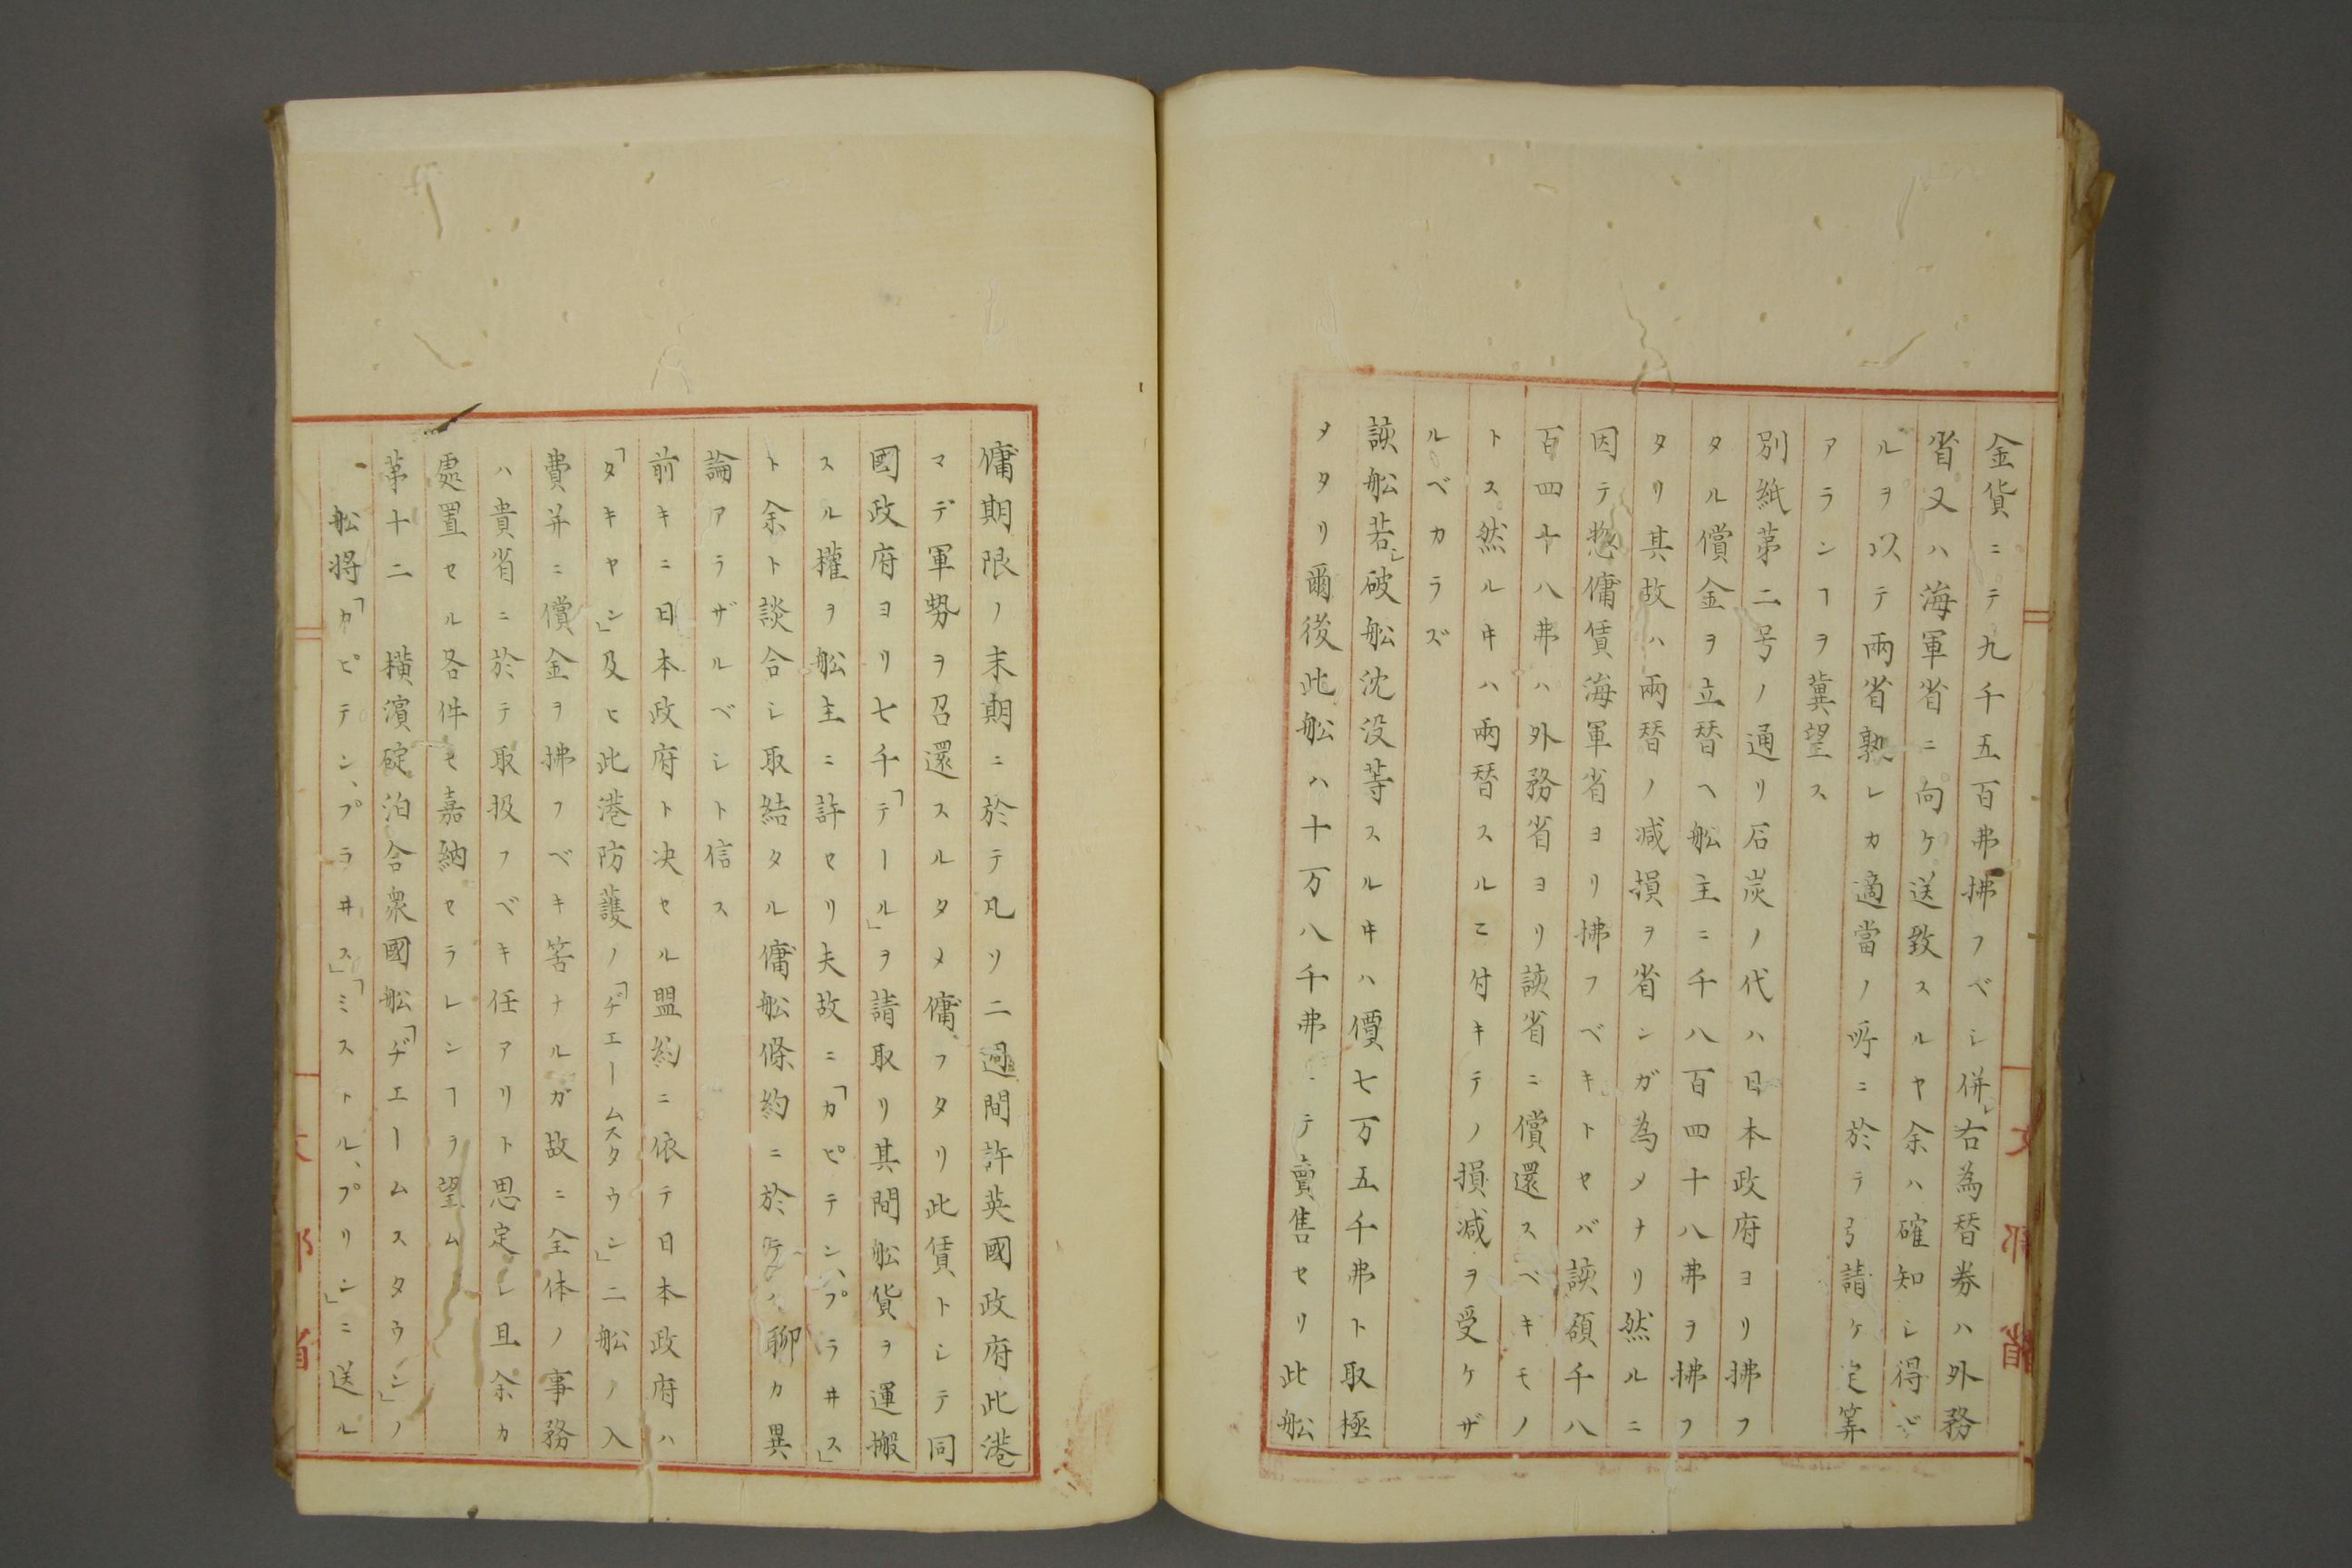 金貨ニテ九千五百弗拂フベシ併シ右為替券ハ外務
省又ハ海軍省ニ向ケ送致スルヤ余ハ確知シ得ズ
ルヲ以テ兩省孰レカ適當ノ所ニ於テ引請ケ定筭
アランヿヲ冀望ス
別紙苐二号ノ通リ石炭ノ代ハ日本政府ヨリ拂フ
タル償金ヲ立替ヘ舩主ニ千八百四十八弗ヲ拂フ
タリ其故ハ兩替ノ減損ヲ省ンガ為メナリ然ルニ
因テ惣傭賃海軍省ヨリ拂フベキトセバ該額千八
百四十八弗ハ外務省ヨリ該省ニ償還スベキモノ
トス然ルキハ兩替スルニ付キテノ損減ヲ受ケザ
ルベカラズ
該舩若シ破舩沈没等スルキハ價七万五千弗ト取極
メタリ爾後此舩ハ十万八千弗ニテ賣售セリ此舩
文部省
傭期限ノ末期ニ於テ凡ソ二週間許英國政府此港
マデ軍勢ヲ召還スルタメ傭フタリ此賃トシテ同
國政府ヨリ七千「テール」ヲ請取リ其間舩貨ヲ運搬
スル權ヲ舩主ニ許セリ夫故ニ「カピテン、プラヰス」
ト余ト談合シ取結タル傭舩條約ニ於テハ聊カ異
論アラザルベシト信ス
前キニ日本政府ト决セル盟約ニ依テ日本政府ハ
「タキヤン」及ヒ此港防護ノ「ヂエームスタウン」二舩ノ入
費并ニ償金ヲ拂フベキ筈ナルガ故ニ全体ノ事務
ハ貴省ニ於テ取扱フベキ任アリト思定シ且余カ
處置セル各件モ嘉納セラレンヿヲ望ム
苐十二　横濱碇泊合衆國舩「ヂエームスタウン」ノ
舩将「カピテン、プラヰス」「ミストル、プリン」ニ送ル